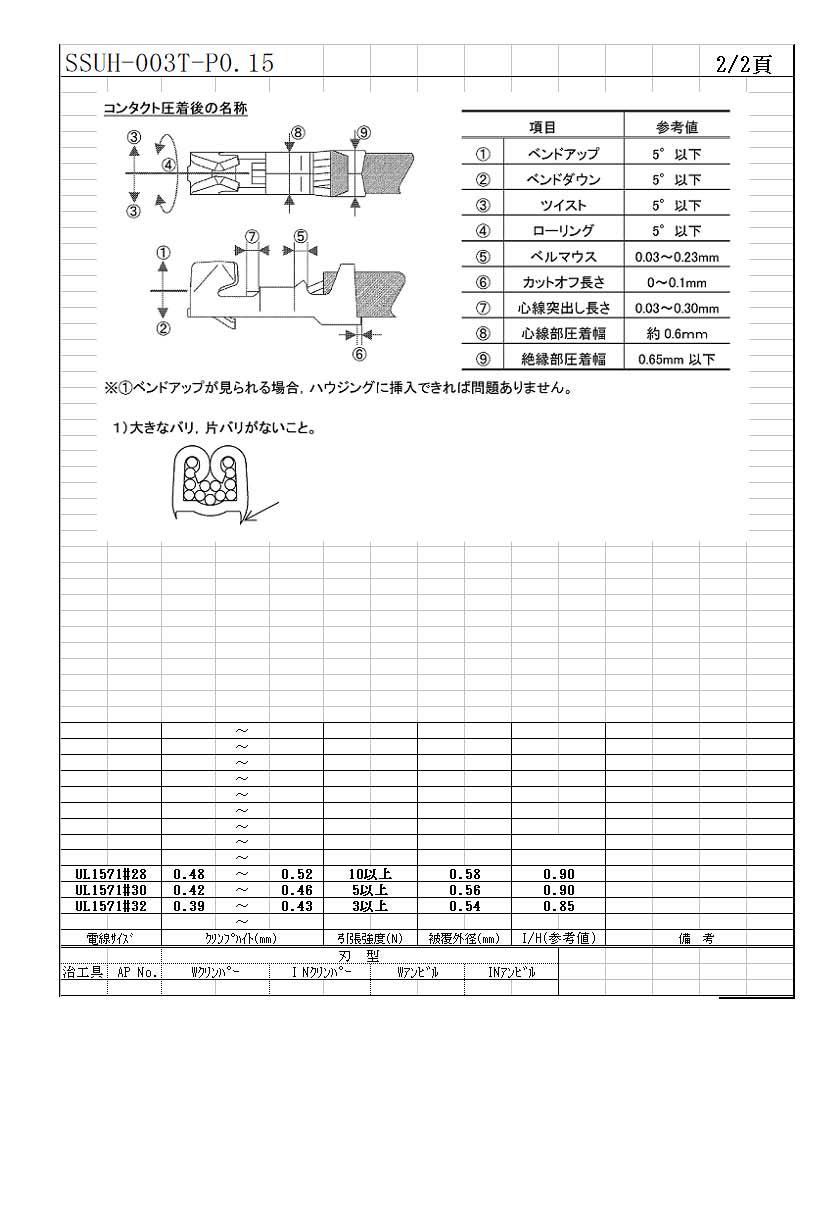 SSUH-003T-P0.15 2/2頁
コンタクト圧着後の名称
③ ⑧ ⑨
④
③
⑦ ⑤
①
②
⑥
項目 参考値
① ベンドアップ 5° 以下
② ベンドダウン 5° 以下
③ ツイスト 5° 以下
④ ローリング 5° 以下
⑤ ベルマウス 0.03～0.23mm
⑥ カットオフ長さ 0～0.1mm
⑦ 心線突出し長さ 0.03～0.30mm
⑧ 心線部圧着幅 約 0.6mm
⑨ 絶縁部圧着幅 0.65mm 以下
※①ベンドアップが見られる場合, ハウジングに挿入できれば問題ありません。
1）大きなバリ, 片バリがないこと。
～
～
～
～
～
～
～
～
～
UL1571#28 0.48 ～ 0.52 10以上 0.58 0.90
UL1571#30 0.42 ～ 0.46 5以上 0.56 0.90
UL1571#32 0.39 ～ 0.43 3以上 0.54 0.85
～
電線ｻｲｽﾞ ｸﾘﾝﾌﾟﾊｲﾄ(mm) 引張強度(N) 被覆外径(mm) I/H(参考値) 備 考
刃 型
治工具 AP No. Wｸﾘﾝﾊﾟｰ I Nｸﾘﾝﾊﾟｰ Wｱﾝﾋﾞﾙ INｱﾝﾋﾞﾙ